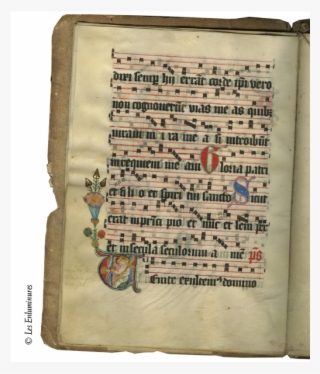 dixi semp hii errāt corde ipi vero
non cognoverūt vias me as quib
iuravi in i ra me a si introibūt
in requiem me am Gloria patri
et fili o et spiri tui sancto Sicut
erat in prīci pio et nūc et sem per
et in secula seculorum a me ps
Venite
© Les Enluminures